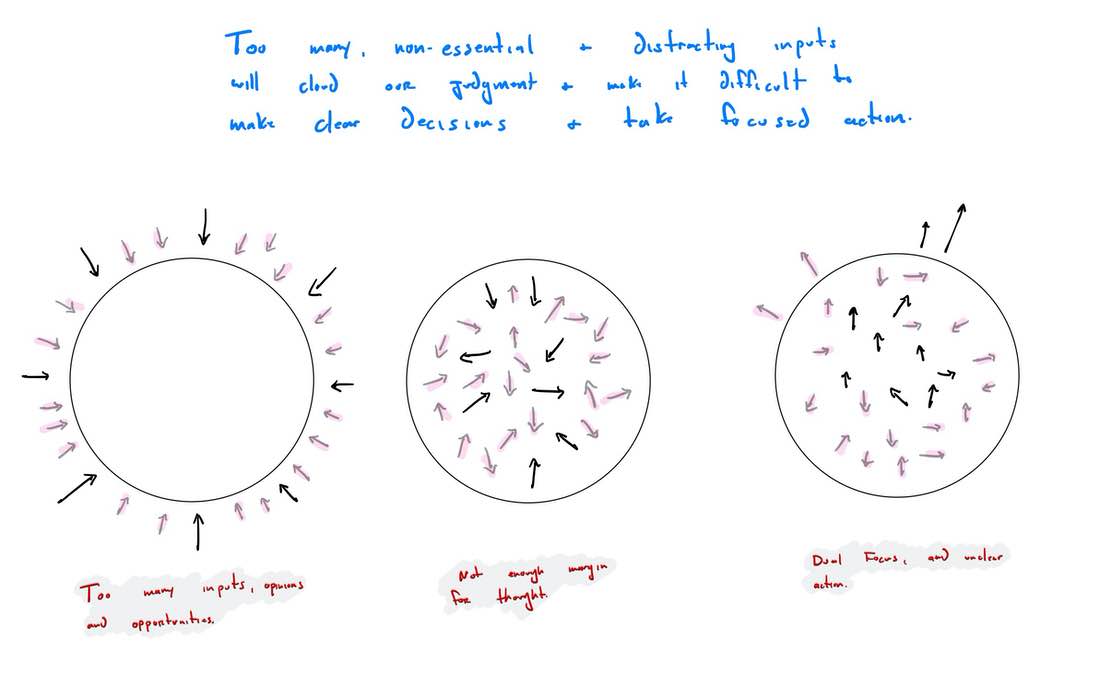 Too many, non-essential + distracting inputs
will cloud our judgment + make it difficult to
make clear decisions + take focused action.
Too many inputs, opinions
and opportunities.
Not enough margin
for thought.
Dual Focus, and unclear
action.